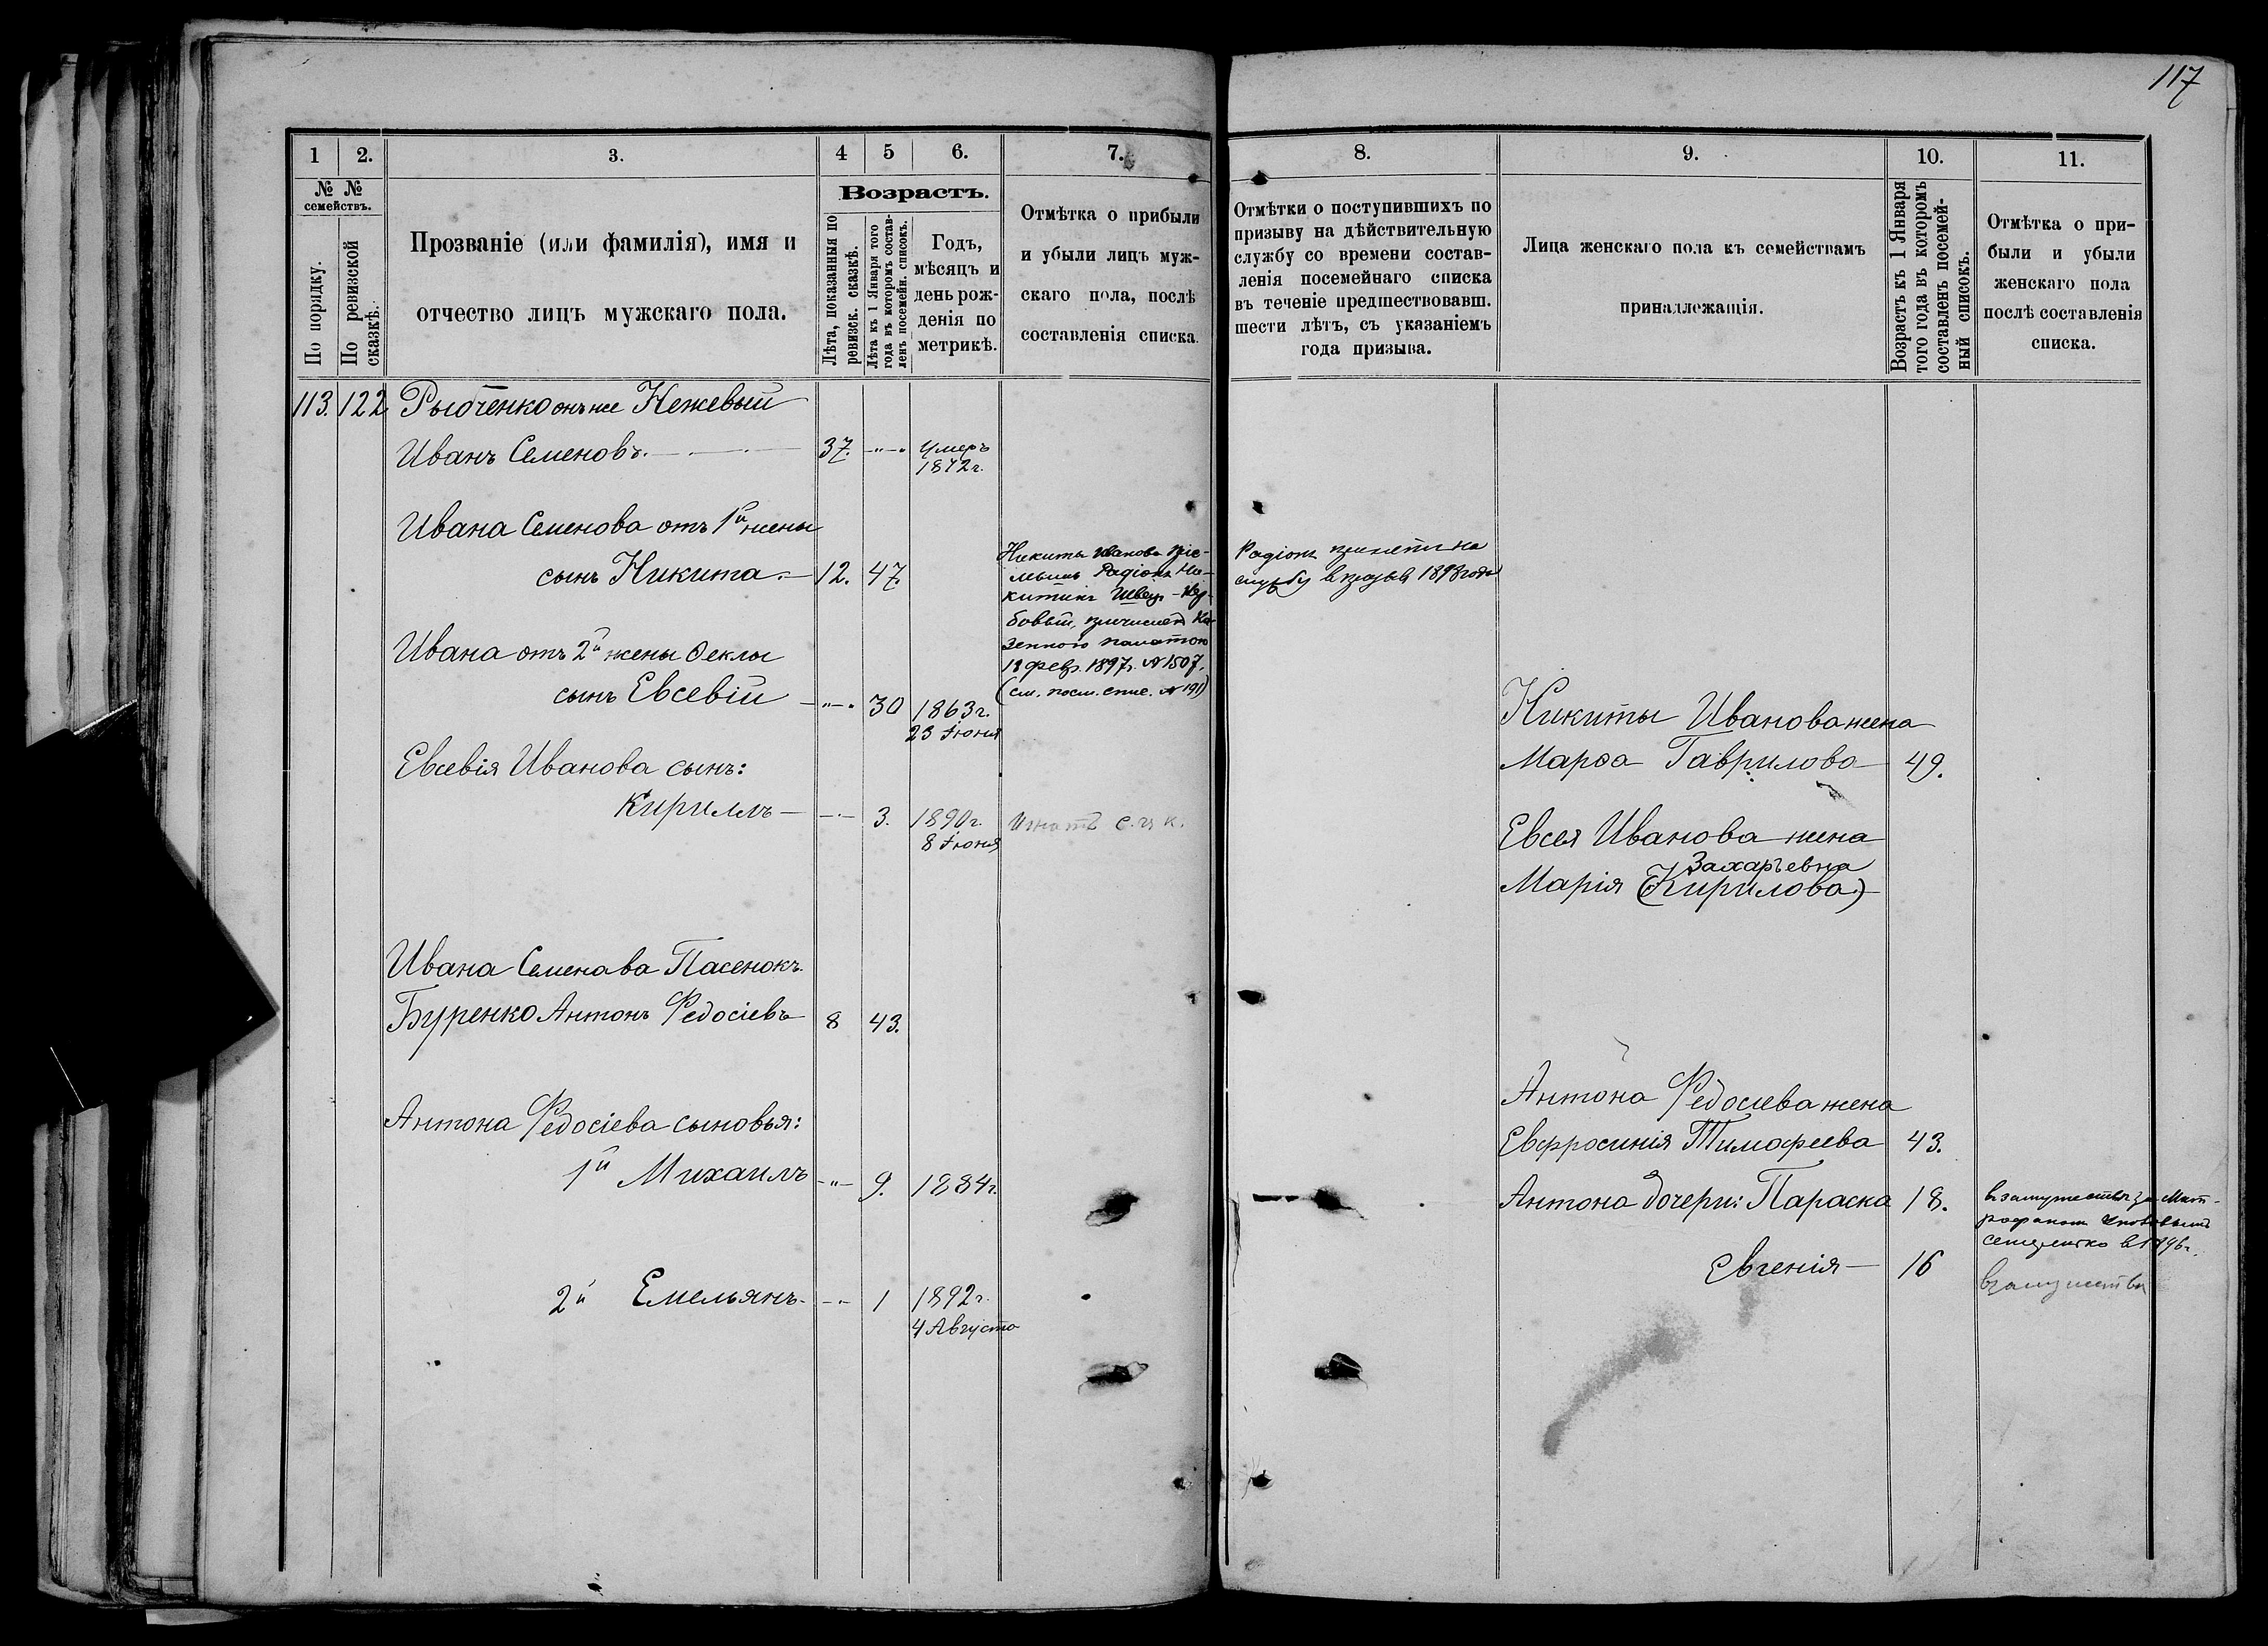 117
1
2.
3.
4
5
6.
7.
8.
9.
10.
11.
№ №
семействъ.
По порядку.
По ревизской
сказкѣ.
Прозваніе (или фамилія), имя и
отчество лицъ мужскаго пола.
Возрастъ.
Лѣта, показанныя по
ревизск. сказкѣ.
Лѣта къ 1 Января того
года въ которомъ состав-
ленъ посемейн. списокъ.
Годъ,
мѣсяцъ и
день рож-
денія по
метрикѣ.
Отмѣтка о прибыли
и убыли лицъ муж-
скаго пола, послѣ
составленія списка.
Отмѣтки о поступившихъ по
призыву на дѣйствительную
службу со времени состав-
ленія посемейнаго списка
въ теченіе предшествовавш.
шести лѣтъ, съ указаніемъ
года призыва.
Лица женскаго пола къ семействамъ
принадлежащія.
Возрастъ къ 1 Января
того года въ которомъ
составленъ посемей-
ный списокъ.
Отмѣтка о при-
были и убыли
женскаго пола
послѣ составленія
списка.
113. 122 Рыбченко онъ же Нежевый
Иванъ Семеновъ. 37. -"- Умеръ
1872 г.
Ивана Семенова отъ 1й жены
сынъ Никита. 12. 47.
Никиты Иванова
Радіонъ Ни-
китинъ Швец
Ка-
зенною палатою
февр. 1897 г. № 1507.
(см. посм. спис. № 191)
Радіонъ принятъ на
службу в призывъ 1893 года
Ивана отъ 2й жены Ѳеклы
сынъ Евсевій -"- 30 1863 г.
23 Іюня
Никиты Иванова жена
Марѳа Гаврилова 49.
Евсевія Иванова сынъ:
Кириллъ - 3. 1890 г.
8 Іюня
Евсея Иванова жена
Захарьевна
Марія (Кирилова)
Ивана Семенова Пасенокъ
Буренко Антонъ Федосіевъ 8 43.
Антона Федосіева сыновья:
1й Михаилъ -"- 9. 1884 г.
2й Емельянъ. -"- 1 1892 г.
4 Августа
Антона Федосіева жена
Евфросинія Тимофеева 43.
Антона дочери: Параска 18.
в замужествѣ за Мит-
рофаном
в 1896 г.
Евгенія 16
в замужествѣ